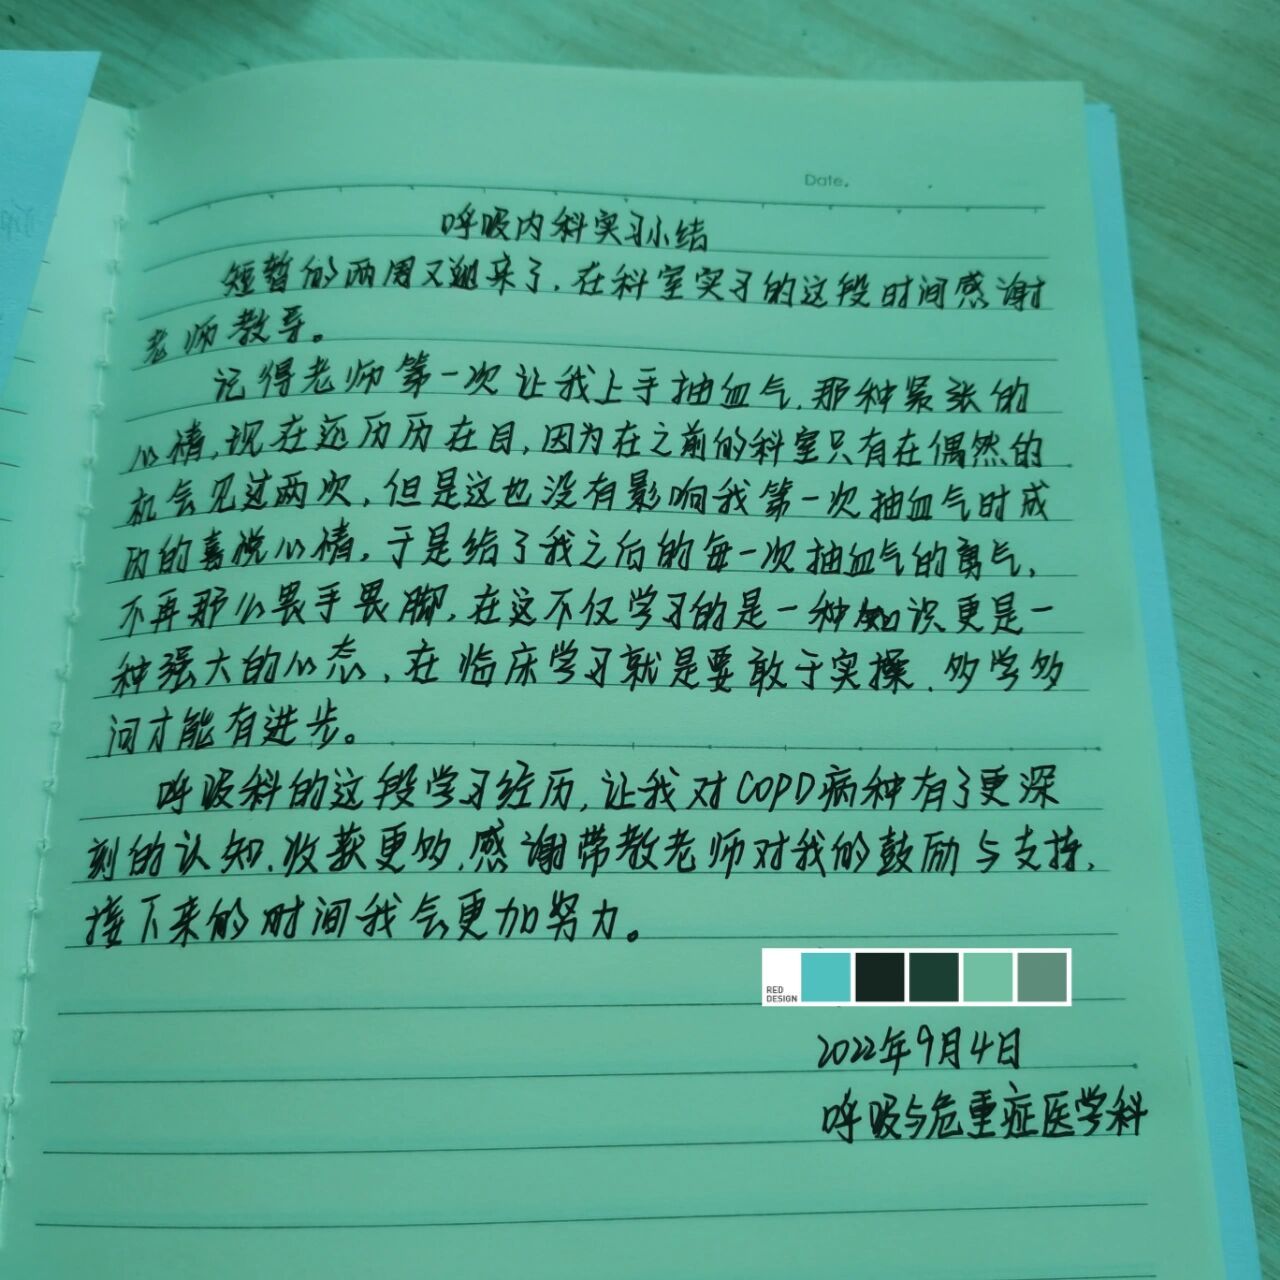 Date.
呼吸内科实习小结
短暂的两周又迎来了,在科室实习的这段时间感谢
老师教导。
记得老师第一次让我上手抽血气,那种紧张的
心情,现在还历历在目,因为在之前的科室只有在偶然的
机会见过两次,但是这也没有影响我第一次抽血气时成
功的喜悦心情,于是给了我之后的每一次抽血气的勇气,
不再那么畏手畏脚,在这不仅学习的是一种知识更是一
种强大的心态,在临床学习就是要敢于实操,多学多
问才能有进步。
呼吸科的这段学习经历,让我对COPD病种有了更深
刻的认知,收获更多,感谢带教老师对我的鼓励与支持,
接下来的时间我会更加努力。
RED
DESIGN
2022年9月4日
呼吸与危重症医学科